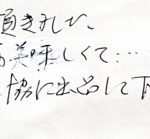 頂きまして、
美味しくて…
協に出品して下